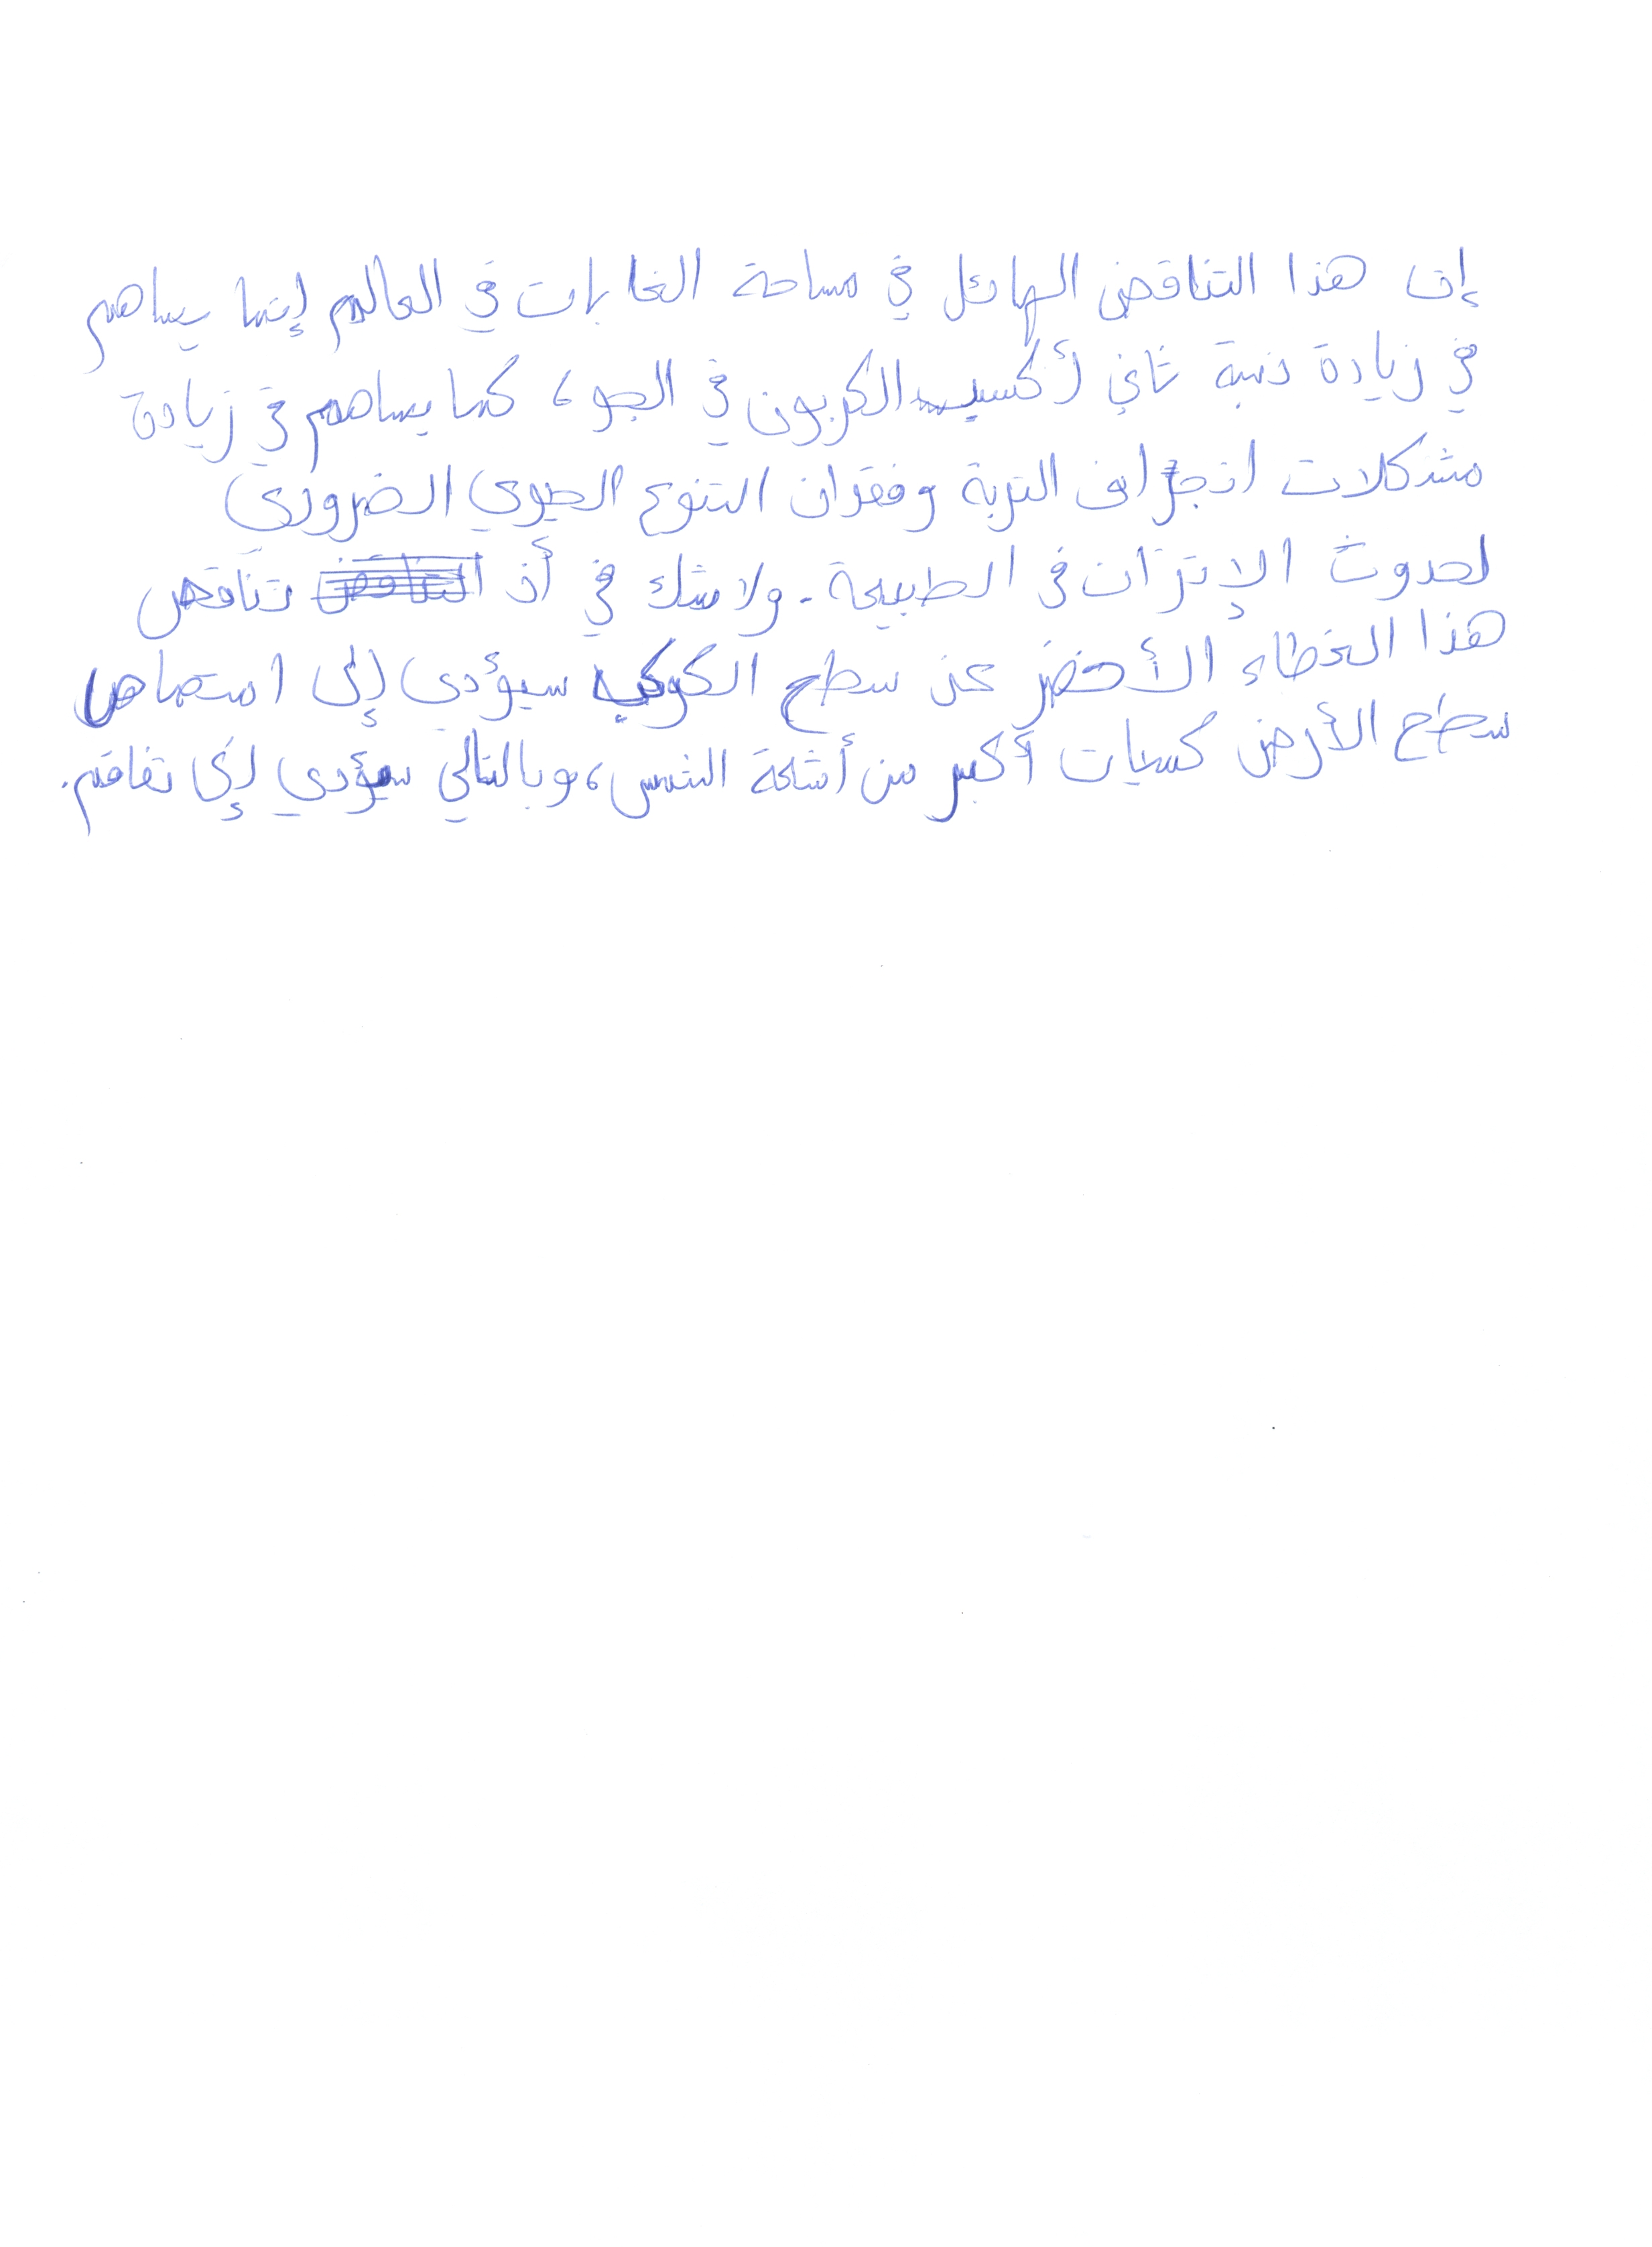 إن هذا التناقض الهائل في مساحة الغابات في العالم إنما يساهم
في زيادة نسبة ثاني أكسيد الكربون في الجو، كما يساهم في زيادة
مشكلات انجراف التربة وفقدان التنوع الحيوي الضروري
لحدوث الإتزان في الطبيعة. ولا شك في أن تناقص
هذا الغطاء الأخضر عن سطح الكوكب سيؤدي إلى امتصاص
سطح الأرض كميات أكبر من أشعة الشمس، وبالتالي سيؤدي إلى تفاقم.